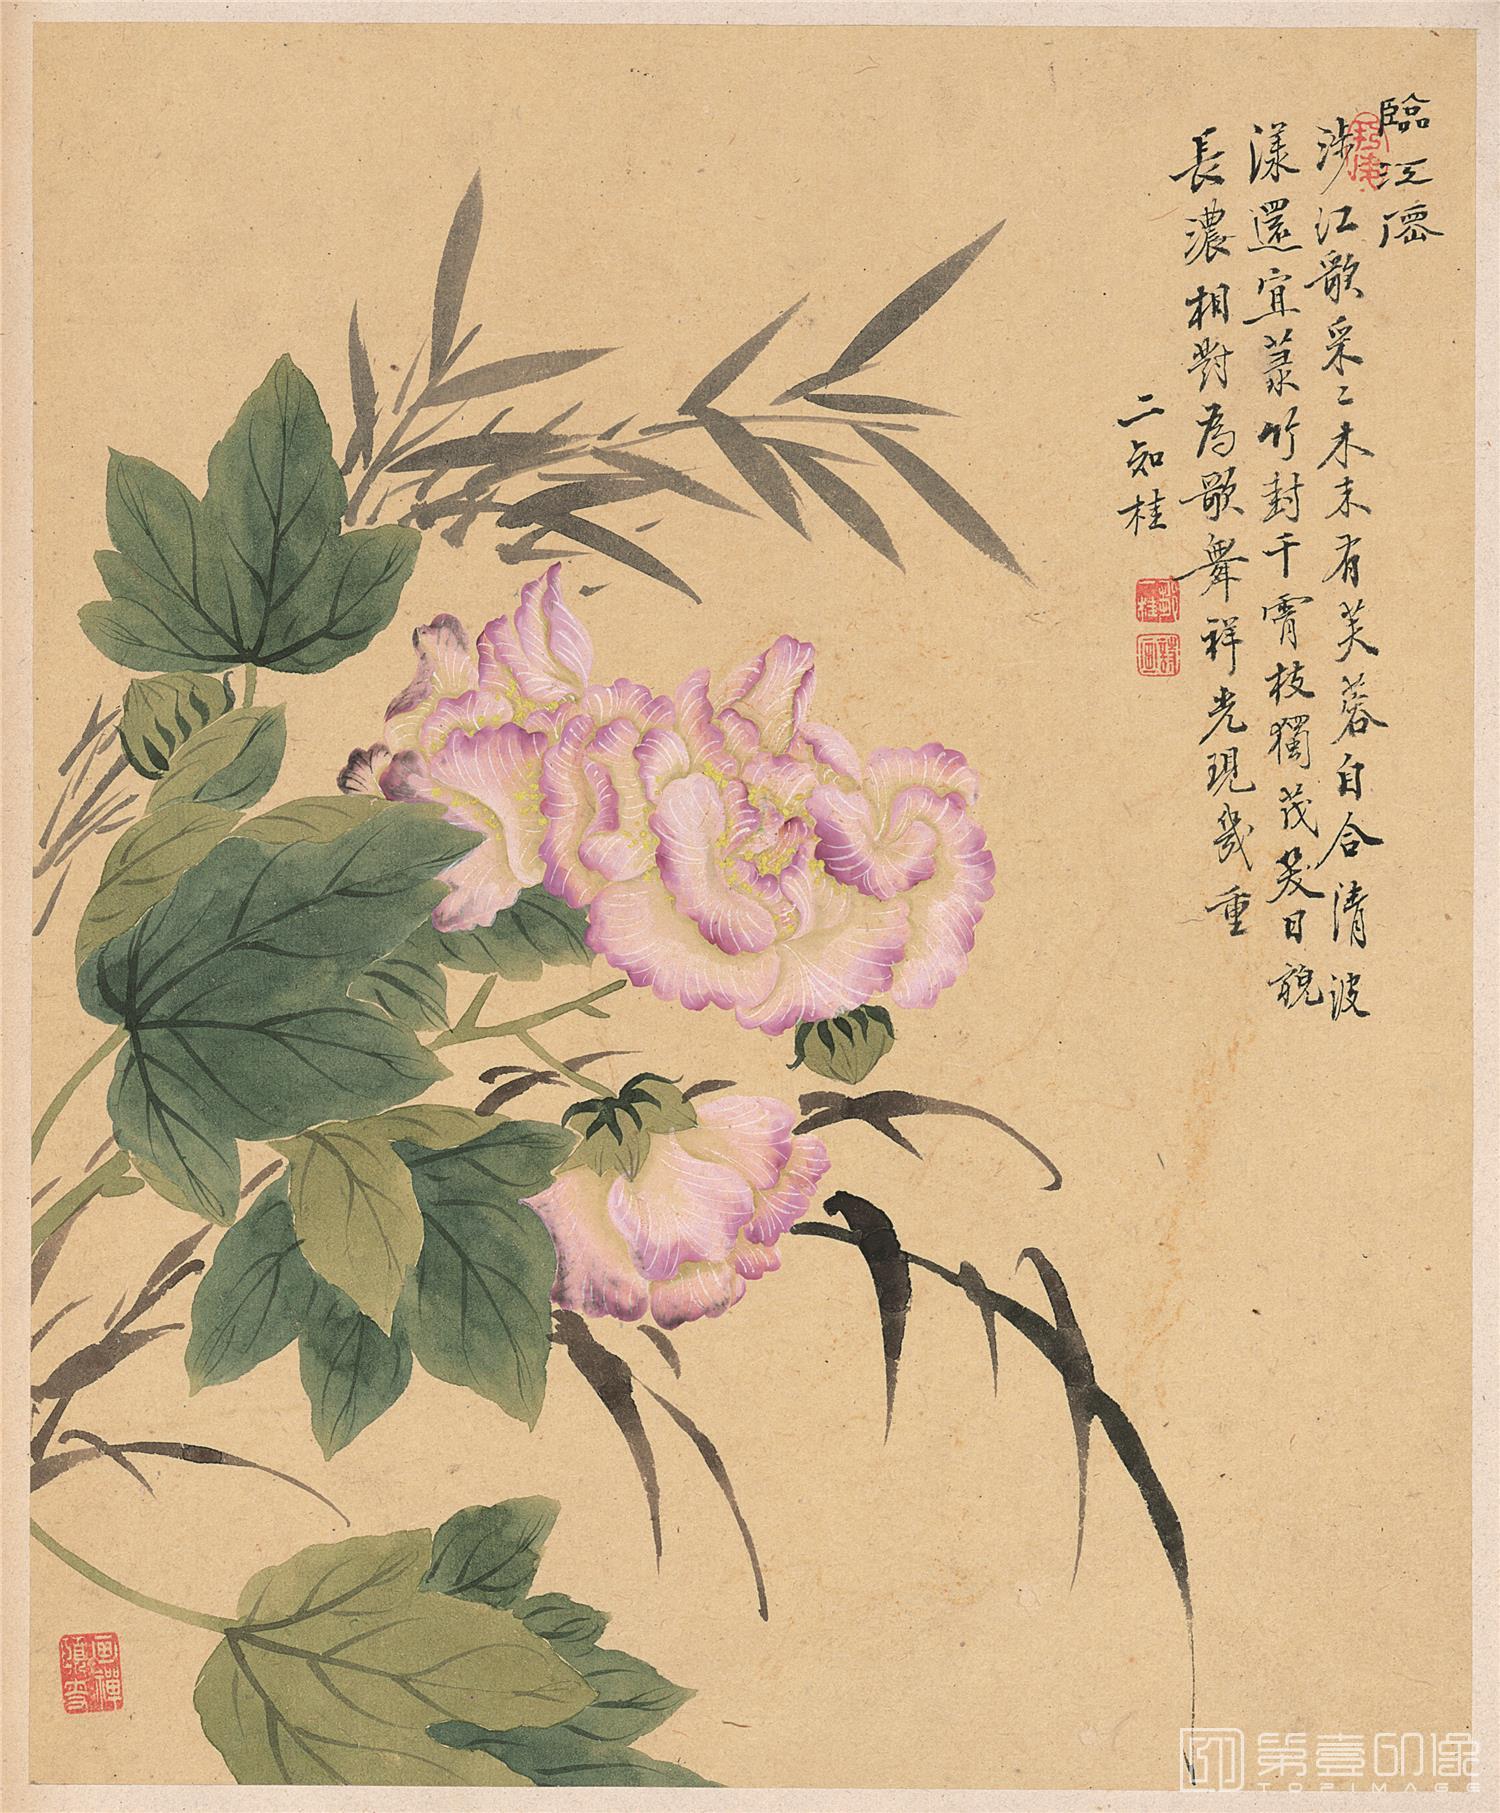 臨江僊
涉江歌采〻木末有芙蓉自合清波
漾還宜菉竹封千霄枝獨茂日
長濃相對為歌舞祥光現幾重
二知桂
第壹印像
TOPIMAGE